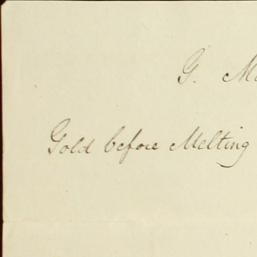 G. M
Gold before Melting